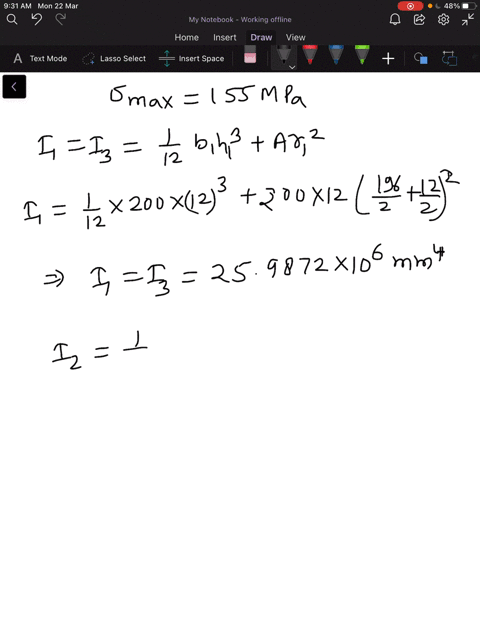 9:31 AM Mon 22 Mar
48%
My Notebook - Working offline
Home Insert Draw View
A Text Mode Lasso Select Insert Space
σmax = 155 MPa
I₁ = I₃ = 1/12 b₁h₁³ + Ar₁²
I₁ = 1/12 × 200 × (12)³ + 200 × 12 (196/2 + 12/2)²
⇒ I₁ = I₃ = 25.9872 × 10⁶ mm⁴
I₂ = 1